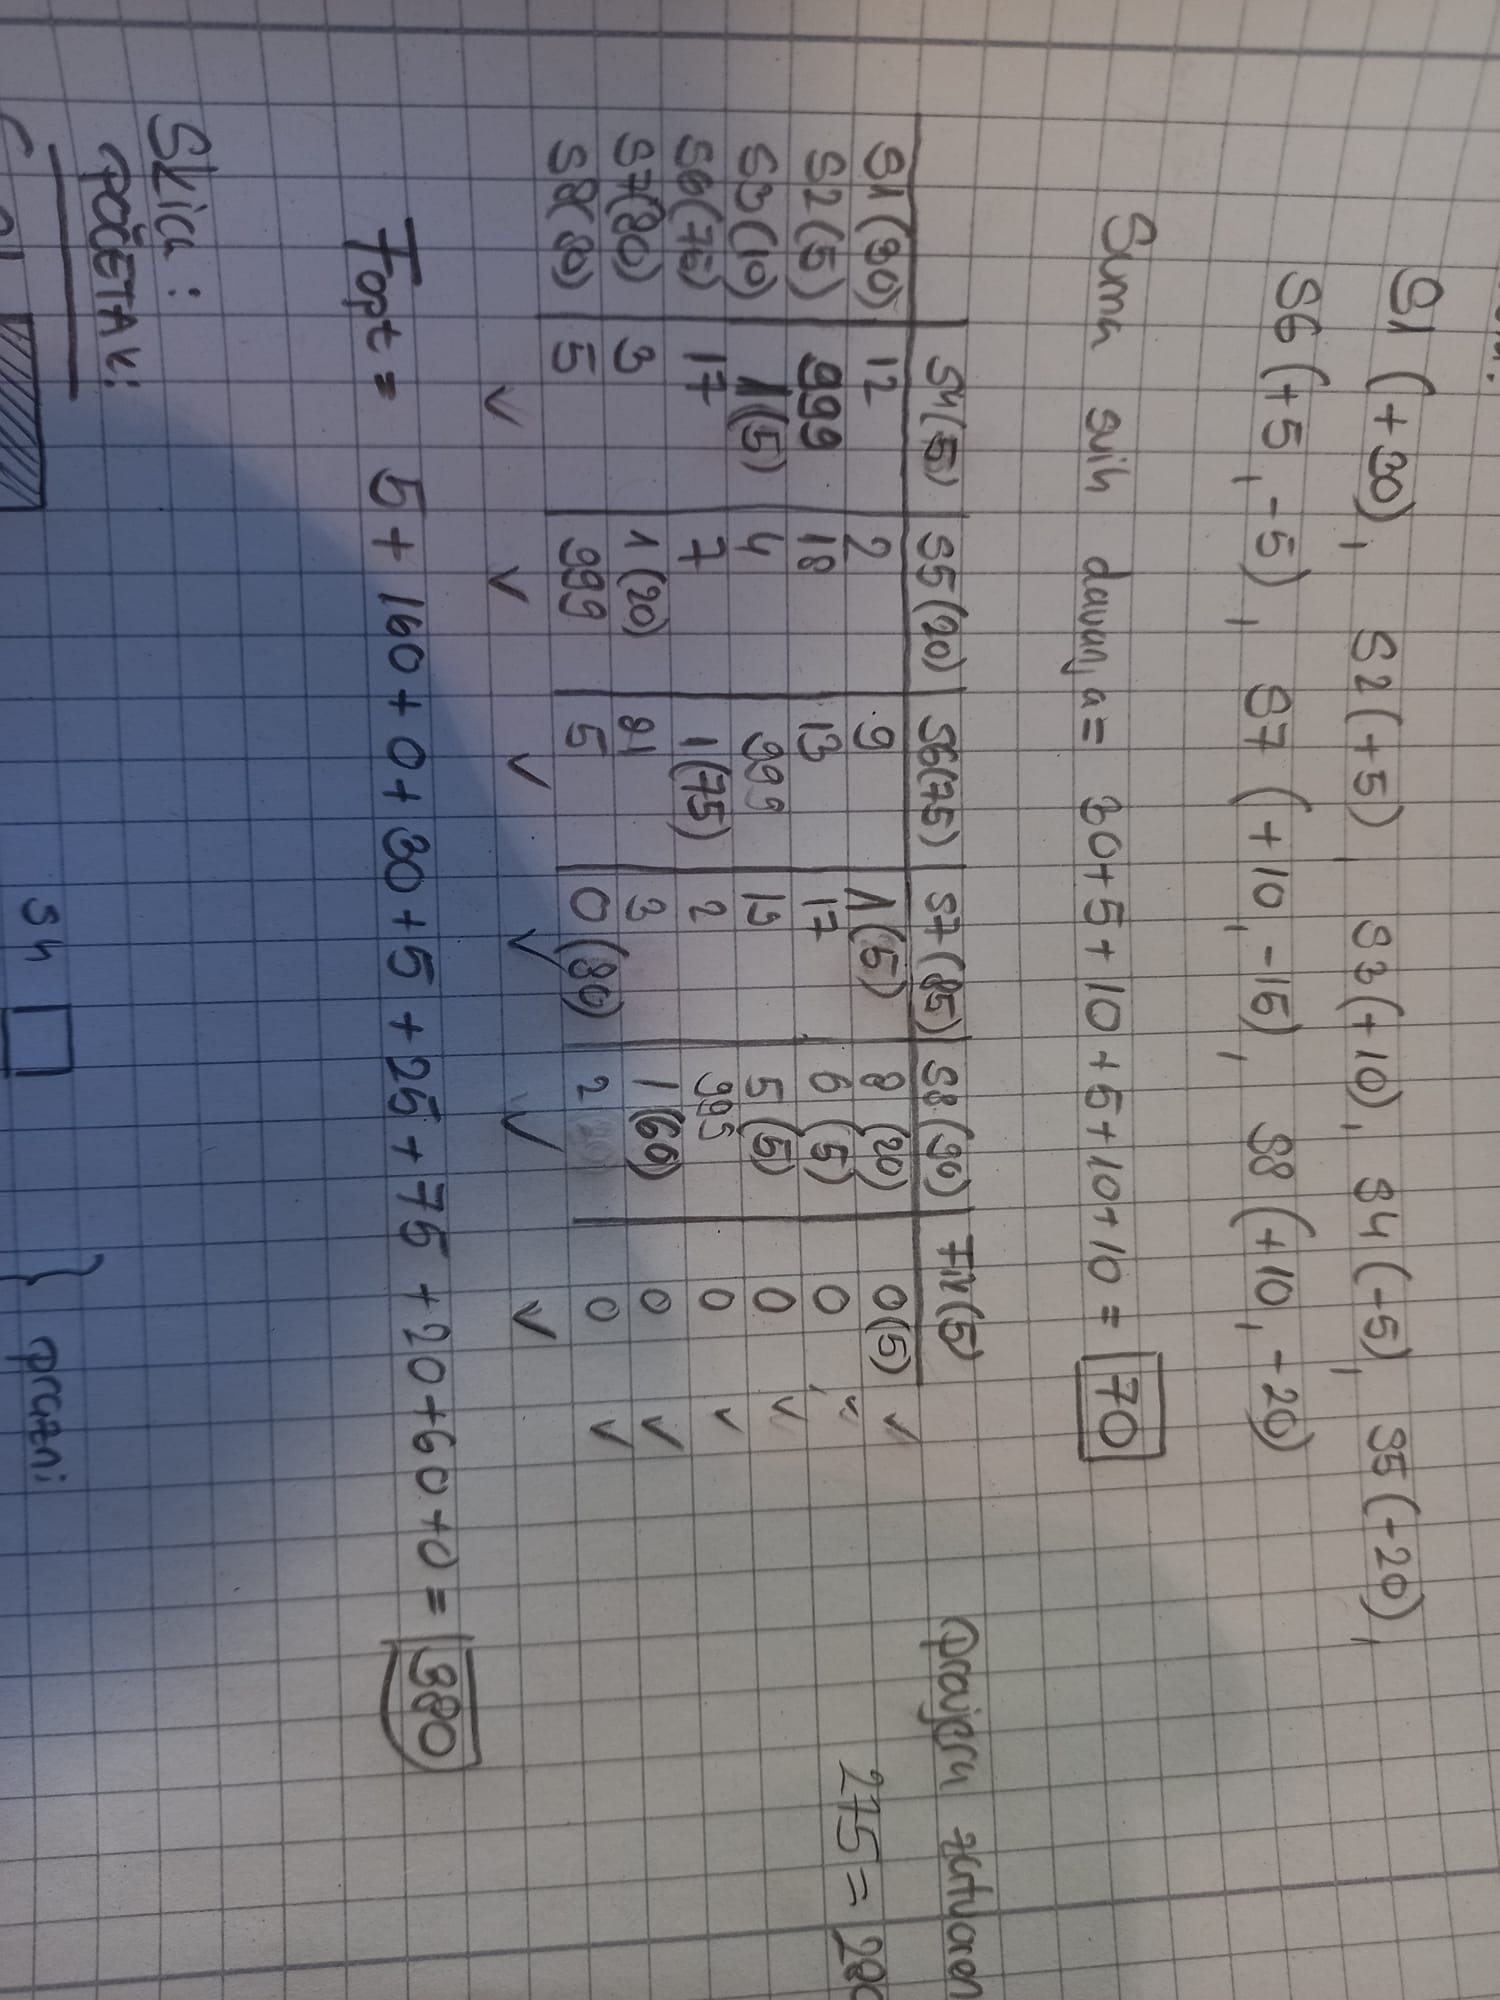 S1 (+30), S2 (+5), S3 (+10), S4 (-5), S5 (-20),
S6 (+5, -5), S7 (+10, -15), S8 (+10, -20)
Suma svih davanja = 30+5+10+5+10+10 = 70
S4(5) S5(20) S6(75) S7(85) S8(90) Fik(5)
S1(30) 12 2 9 1(5) 8 (20) 0(5) ✓
S2(5) 999 18 13 17 6 (5) 0 ✓
S3(10) 1(5) 4 999 19 5 (5) 0 ✓
S6(75) 17 7 1(75) 2 999 0 ✓
S7(80) 3 1(20) 21 3 1(60) 0 ✓
S8(80) 5 999 5 0(80) 2 0 ✓
✓ ✓ ✓ ✓ ✓ ✓
provjera zatvoren
275 = 280
Fopt = 5 + 160 + 0 + 30 + 5 + 25 + 75 + 20 + 60 + 0 = 380
Skica:
POČETAK:
S4 } prazni